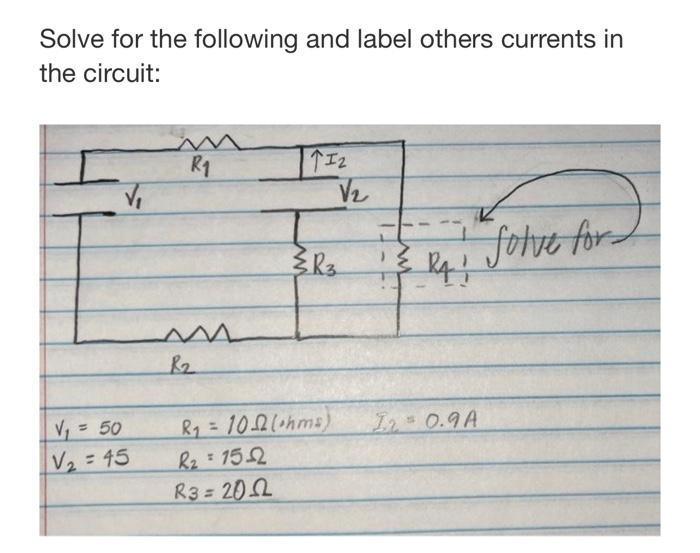 Solve for the following and label others currents in
the circuit:
R1
↑I2
V1
V2
R3
R4
Solve for
R2
V1 = 50
R1 = 10Ω (ohms)
I2 = 0.9A
V2 = 45
R2 = 15Ω
R3 = 20Ω